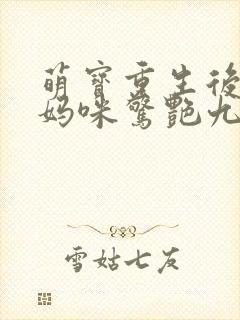 萌寶重生後
媽咪驚艷九
雪姑七友